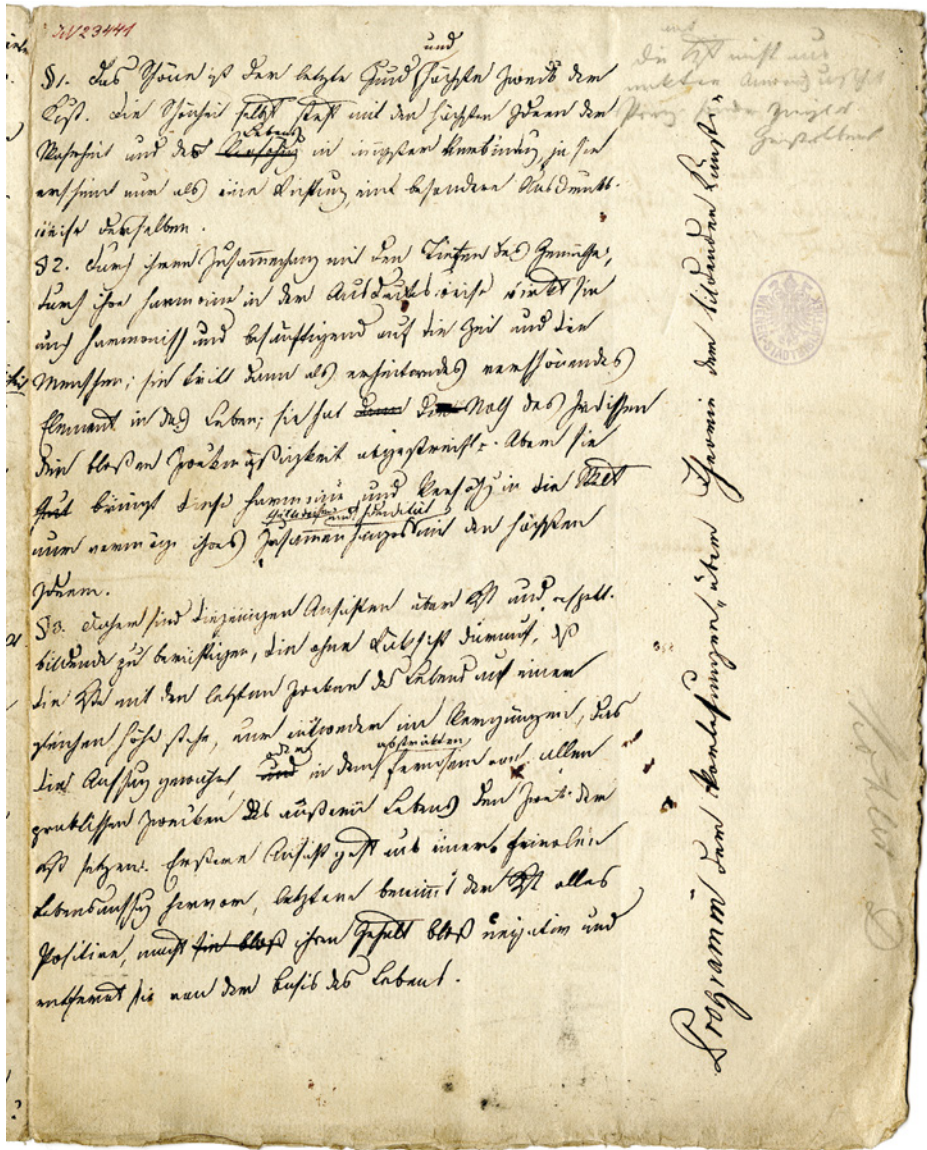 IN 23441
und
§1. Das Schöne ist der letzte Grund höchste Zweck der
Kst. Die Schönheit selbst steht mit den höchsten Ideen der
Lebens
Wahrheit und des in innigster Verbindung, ja sie
erscheint nur als eine Richtung, eine besondere Ausdrucks-
weise derselben.
§2. Durch ihren Zusammenhang mit den Tiefen des Gemüthes,
durch ihre Harmonie in der Ausdrucksweise wirkt sie
auch harmonisch und besänftigend auf die Zeit und die
Menschen; sie tritt dann als erheiterndes verschönendes
Element in das Leben; sie hat die Noth des Irdischen
die bloßen Zweckmäßigkeit abgestreift. Aber sie
bringt diese Harmonie und Versöhng in die Welt
und
nur vermöge ihres Zusammenhanges mit den höchsten
Ideen.
§3. Daher sind diejenigen Ansichten über Kst und
bildende zu berichtigen, die ohne Rücksicht darauf, dß
die Kst mit den letzten Zwecken des Lebens auf einer
gleichen Höhe stehe, nur entweder im Vergnügen, das
oder abstrakten
diese Auffssg gewährt, und in dem Fernsein von allen
praktischen Zwecken des äußern Lebens den Zweck der
Kst setzen. Erstere Ansicht geht aus einer frivolen
Lebensauffssg hervor, letztere benimmt der Kst alles
Positive, macht sie bloß ihren Gehalt bloß negativ und
entfernt sie von der Basis des Lebens.
die Kst nicht aus
Programm der Vorlesungen über Theorie der bildenden Künste